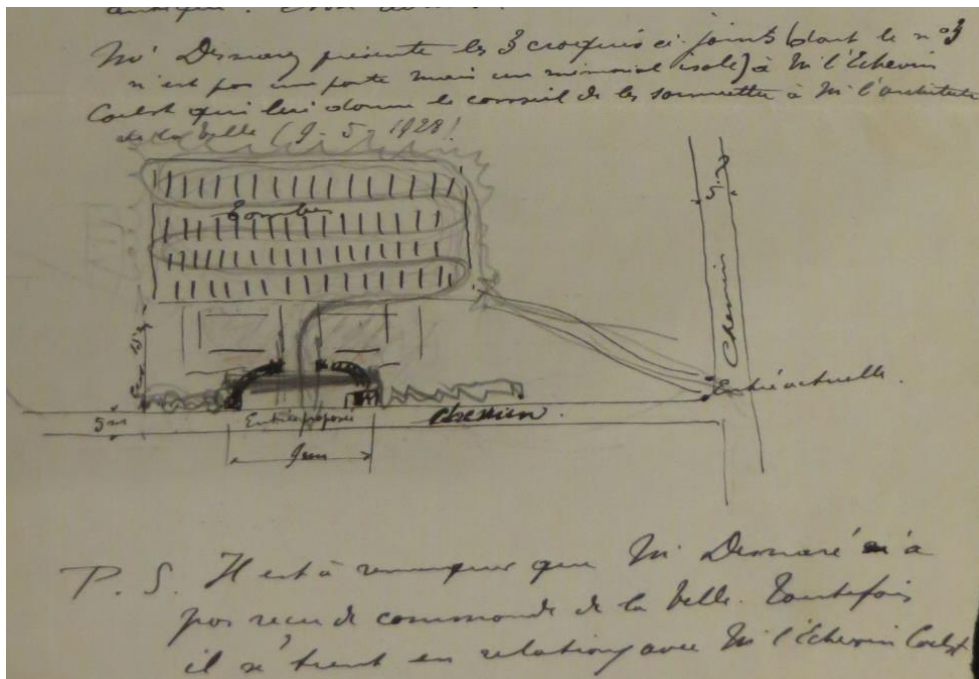 Mr Desmarez présente les 3 croquis ci-joints (dont le n° 3
n'est pas une porte mais un mémorial isolé) à Mr l'Echevin
Coelst qui lui donne le conseil de les soumettre à Mr l'architecte
de la Ville (9-5-1928!
Tombes
Chemin
Entrée actuelle.
5m
Entrée proposée
Chemin.
9m
P.S. Il est à remarquer que Mr Desmaré n'a
pas reçu de commande de la Ville. Toutefois
il se tient en relations avec Mr l'Echevin Coelst